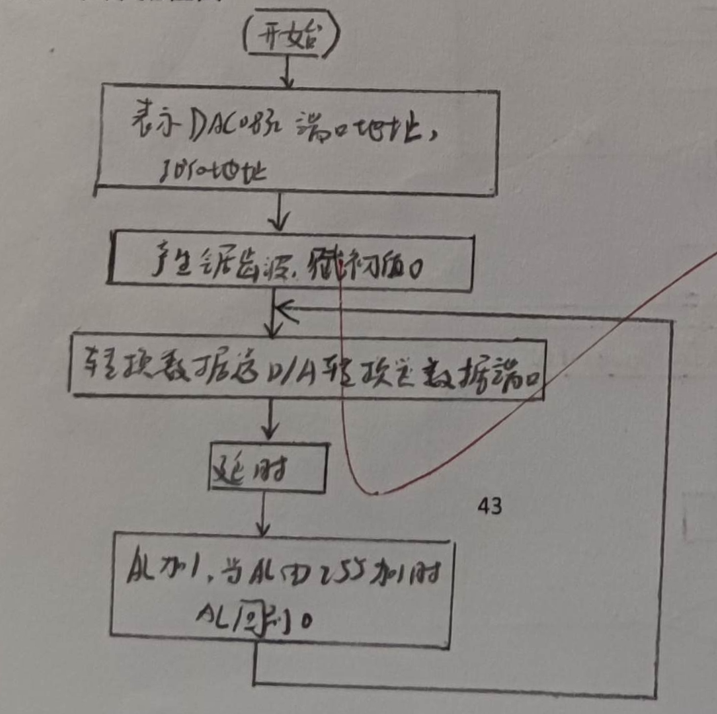 开始
表示DAC0832端口地址,
10%地址
产生锯齿波,赋初值0
转换数据送D/A转换器数据端口
延时
43
AL加1,当AL由255加1时
AL回到0